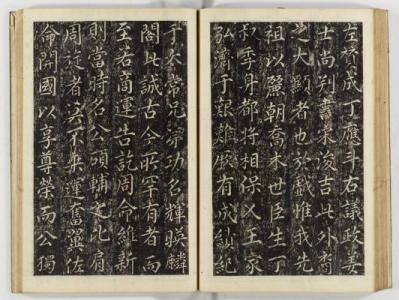 左贊成丁應斗右議政姜
士尚判書宋俊吉此外裔
之大顯者也於戲惟我先
祖以麗朝喬木世臣生丁
叔季身都將相保乂王家
弘濟于艱難厥有成績紀
于太常兄弟功名輝暎麟
閣此誠古今所罕有者而
至若高運告訖周命維新
則當時名公碩輔比肩
周旋者莫不乘運奮翼佐
命開國以享尊榮而公獨